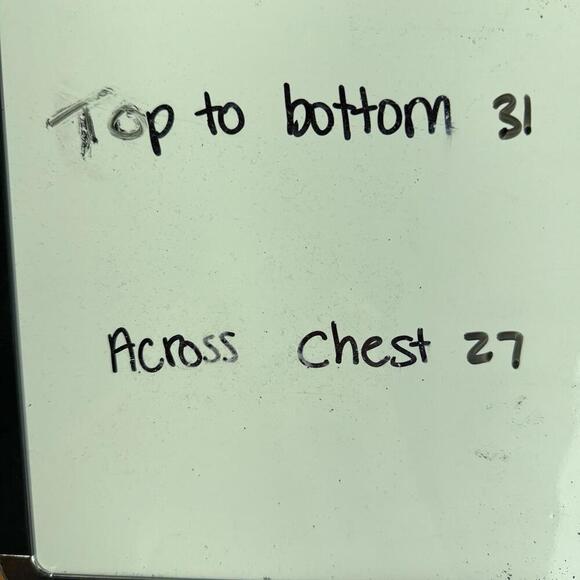 Top to bottom 31
Across Chest 27